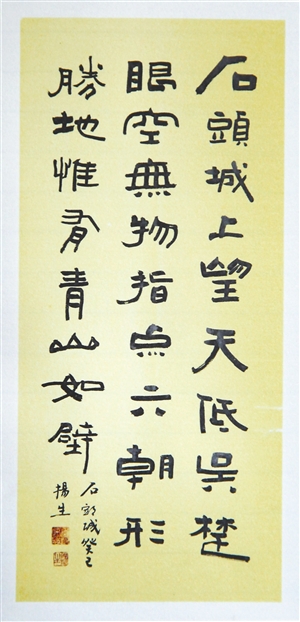 石頭城上望天低吴楚
眼空無物指点六朝形
勝地惟有青山如壁
石頭城癸巳
楊生